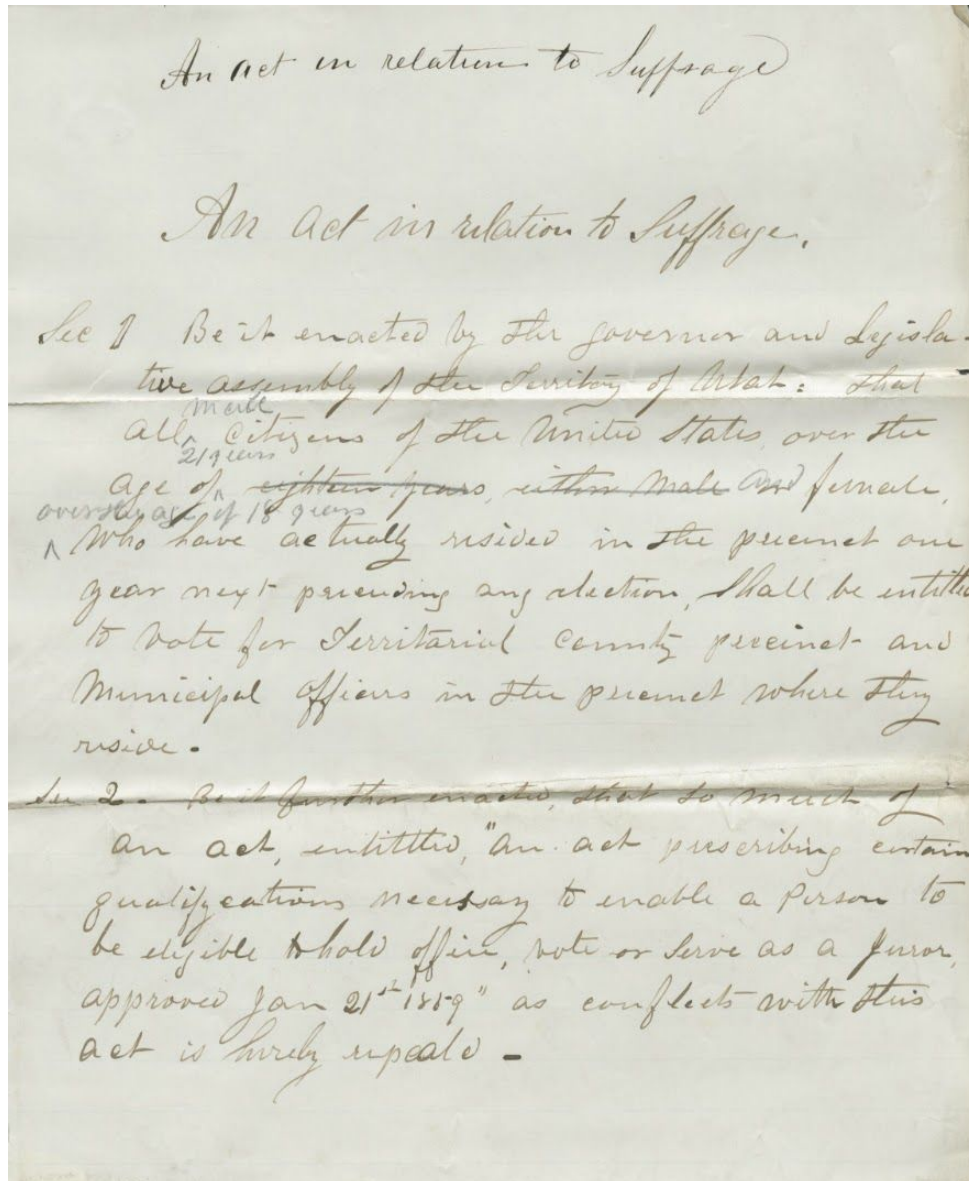 An act in relation to Suffrage
An Act in relation to Suffrage.
Sec 1 Be it enacted by the governor and Legisla-
tive assembly of the Territory of Utah: that
male
all citizens of the United States, over the
21 years
age of eighteen years, either male and female,
over the age of 18 years
who have actually resided in the precinct one
year next preceding any election, shall be entitled
to vote for Territorial County precinct and
Municipal officers in the precinct where they
reside -
Sec 2 - Be it further enacted, that so much of
an act, entittled, "an act prescribing certain
qualifycations necessary to enable a Person to
be eligible to hold office, vote or serve as a Juror,
approved Jan 21st 1859" as conflects with this
act is hereby repeald -